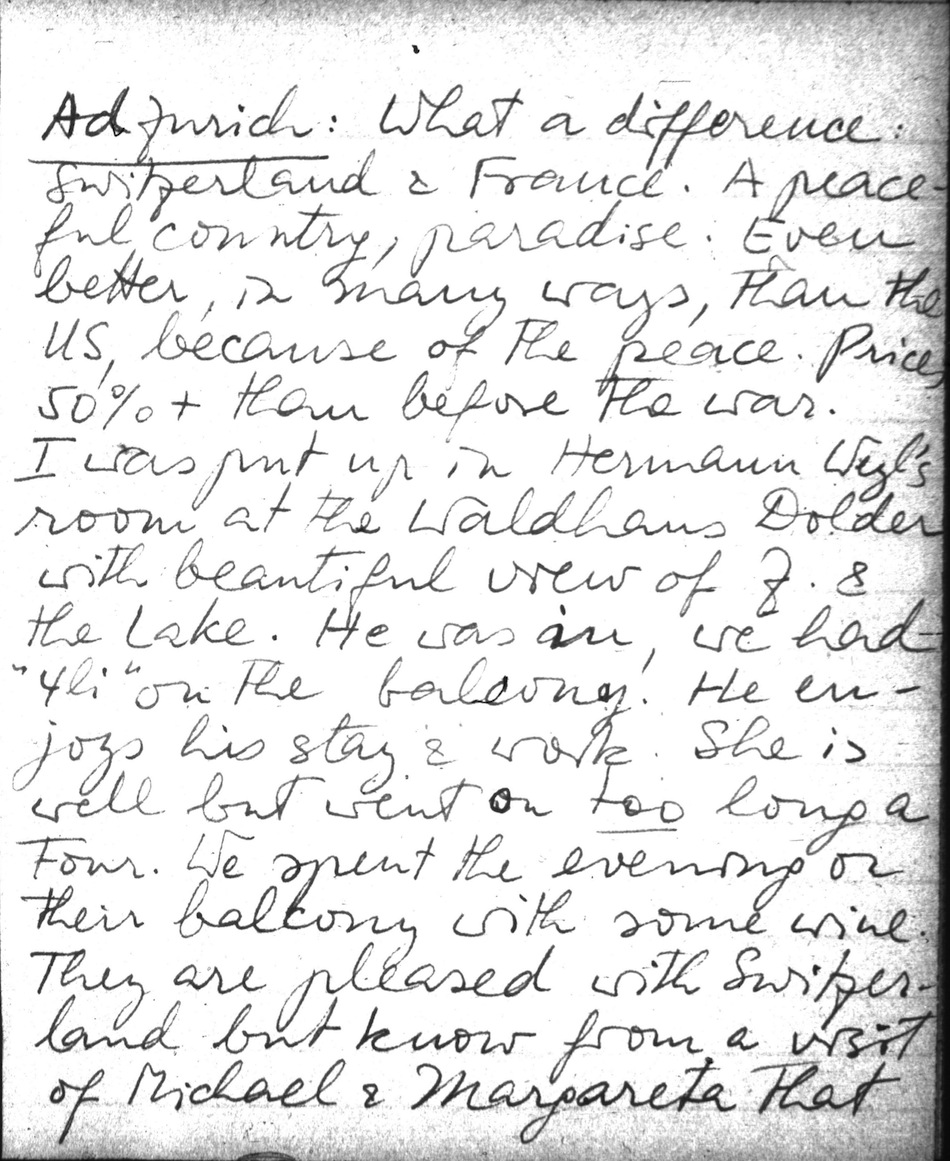 Ad Zurich: What a difference:
Switzerland & France. A peace-
ful country, paradise. Even
better, in many ways, than the
US, because of the peace. Prices
50%+ than before the war.
I was put up in Hermann Weyl's
room at the Waldhaus Dolder
with beautiful view of Z. &
the Lake. He was in, we had
"4li" on the balcony. He en-
joys his stay & work. She is
well but went on too long a
Tour. We spent the evening on
their balcony with some wine.
They are pleased with Switzer-
land but know from a visit
of Michael & Margareta that